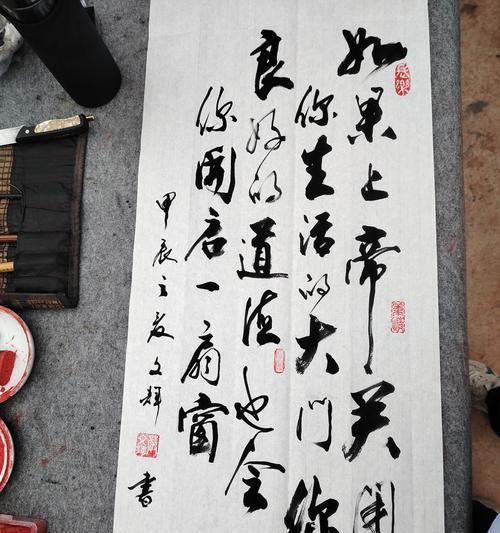 如果上帝关闭
你生活的大门你
良好的道德也会
你開启一扇窗
甲辰之夏文輝
書